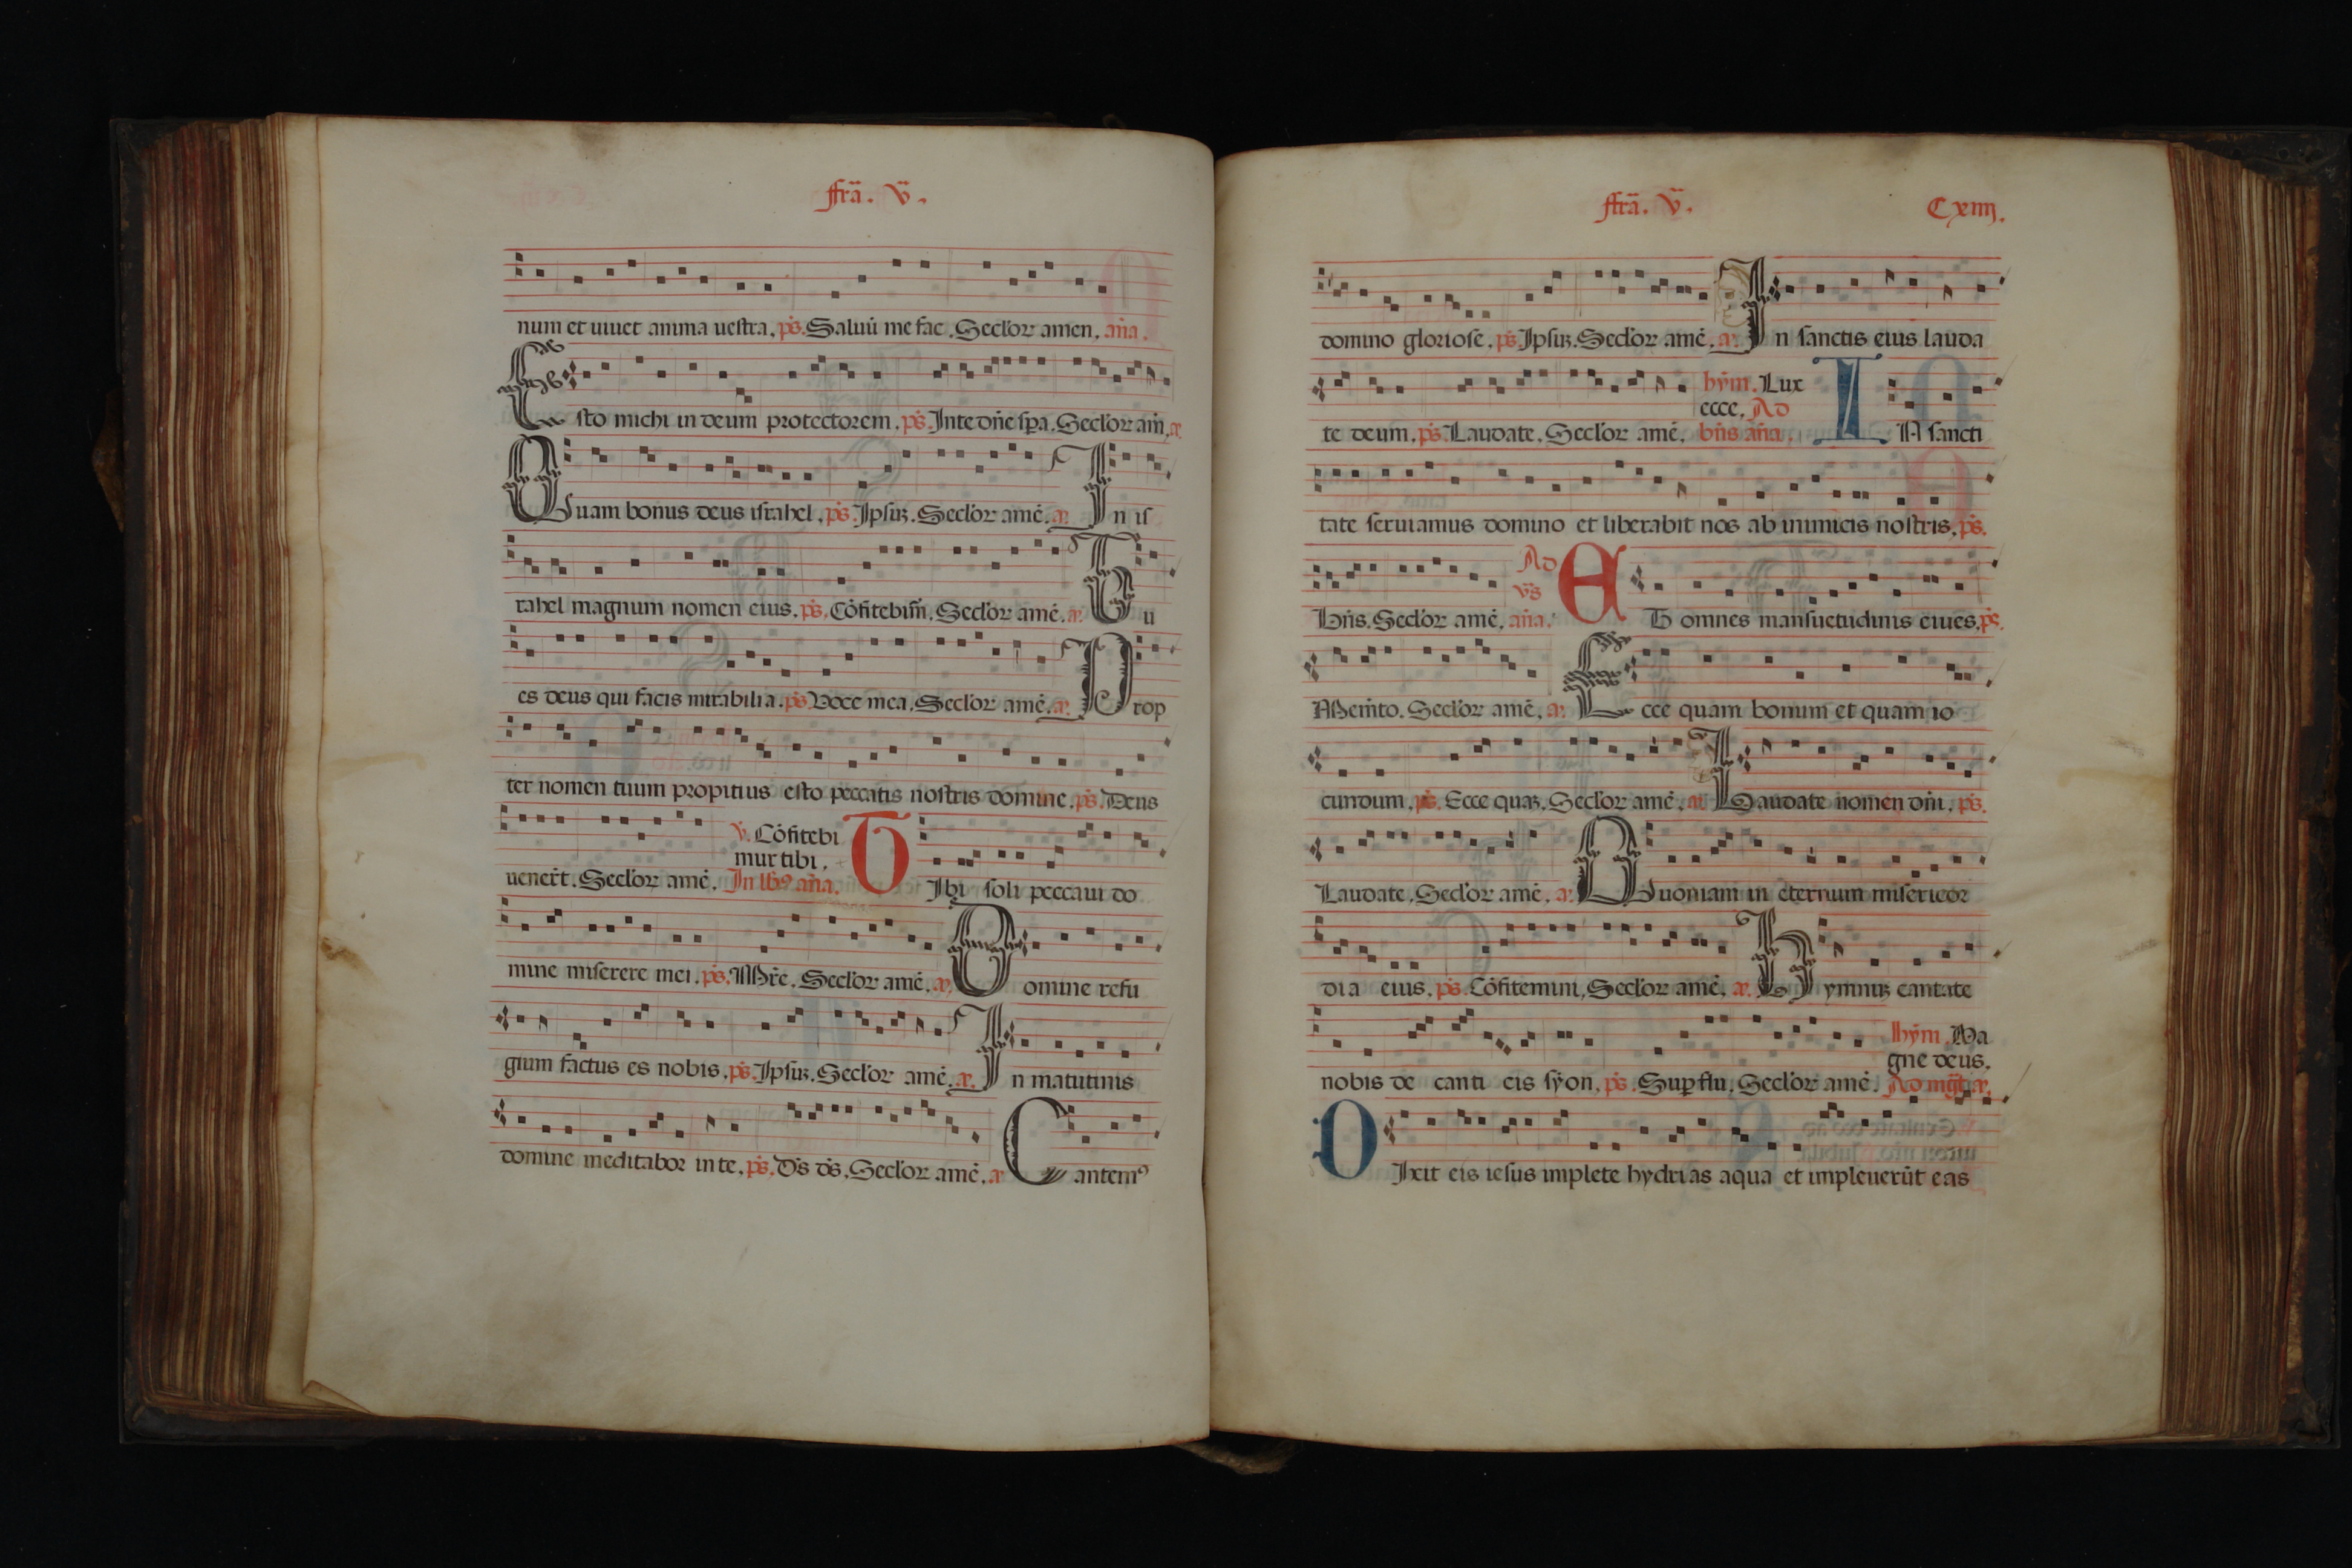 ffrã. v̄.
num et uiuet anima uestra, ps̄. Saluū me fac. Secl'or amen, an̄a.
Esto michi in deum protectorem, ps̄. In te dn̄e spa. Secl'or am̄, a.
Quam bonus deus israhel, ps̄. Ipsuz. Secl'or amē. a. In is
rahel magnum nomen eius. ps̄. Cōfitebim̄. Secl'or amē. a. Tu
es deus qui facis mirabilia. ps̄ Voce mea, Secl'or amē. a. Prop
ter nomen tuum propitius esto peccatis nostris domine. ps̄. Deus
v̄. Cōfitebi
mur tibi.
uenerīt. Secl'or amē. In lbꝰ an̄a. TIbi soli peccaui do
mine miserere mei. ps̄. M̄re. Secl'or amē. a. Domine refu
gium factus es nobis. ps̄. Ipsuz. Secl'or amē. a. In matutinis
domine meditabor in te, ps̄. Ds̄ ds̄. Secl'or amē. a Cantemꝰ
ffrã. v̄. Cxiiij.
domino gloriose. ps̄ Ipsuz. Secl'or amē. a. In sanctis eius lauda
hȳm. Lux
ecce. Ad
te deum. ps̄ Laudate. Secl'or amē. bn̄s an̄a. IN sancti
tate seruiamus domino et liberabit nos ab inimicis nostris. ps̄.
Ad
vs̄
Bn̄s. Secl'or amē. an̄a. ET omnes mansuetudinis eiues. ps̄.
Memīto. Secl'or amē. a. Ecce quam bonum et quam io
cundum. ps̄. Ecce quaz. Secl'or amē. a. Laudate nomen dn̄i. ps̄.
Laudate. Secl'or amē. a. Quoniam in eternum misericor
dia eius. ps̄. Cōfitemini, Secl'or amē, a. Hymnuz cantate
hȳm. Ma
gne deus.
nobis de canti cis syon, ps̄. Sup flu. Secl'or amē. Ad mḡt. a.
DIxit eis iesus implete hydrias aqua et impleuerūt eas